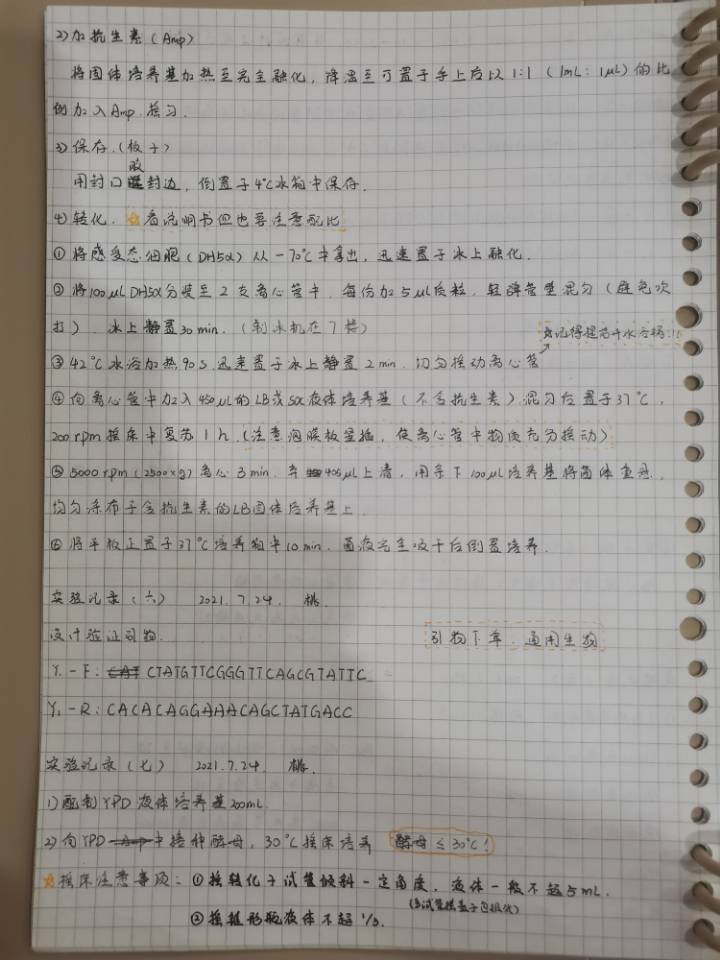 2)加抗生素(Amp)
将固体培养基加热至完全融化,降温至可置于手上后以1:1(1mL:1μL)的比
例加入Amp.摇匀.
3)保存.(板子)
用封口膜封边,倒置于4℃冰箱中保存.
4)转化.☆看说明书但也要注意配比
①将感受态细胞(DH5α)从-70℃中拿出,迅速置于冰上融化.
②将100μL DH5α分装至2支离心管中.每份加5μL质粒,轻弹管壁混匀(避免吹
打).冰上静置30min.(制冰机在7楼)
☆记得提前开水浴锅!!!
③42℃水浴加热90s迅速置于冰上静置2min.切勿摇动离心管
④向离心管中加入450μL的LB或SOC液体培养基(不含抗生素)混匀后置于37℃,
200rpm摇床中复苏1h.(注意泡膜板竖插,使离心管中物质充分摇动)
⑤5000rpm(2500×g)离心3min.弃405μL上清,用余下100μL培养基将菌体重悬.
均匀涂布于含抗生素的LB固体培养基上.
⑥将平板正置于37℃培养箱中10min.菌液完全吸干后倒置培养.
实验记录(六) 2021.7.24.
设计验证引物.
引物下单.通用生物
Y₁-F:CAT CTATGTTCGGGTTCAGCGTATTC
Y₁-R:CACACAGGAAACAGCTATGACC
实验记录(七) 2021.7.24.
1)配制YPD液体培养基200mL.
2)向YPD中接种酵母,30℃摇床培养 酵母≤30℃!
☆摇床注意事项:①摇转化子试管倾斜一定角度,液体一般不超5mL.
②摇锥形瓶液体不超1/3.